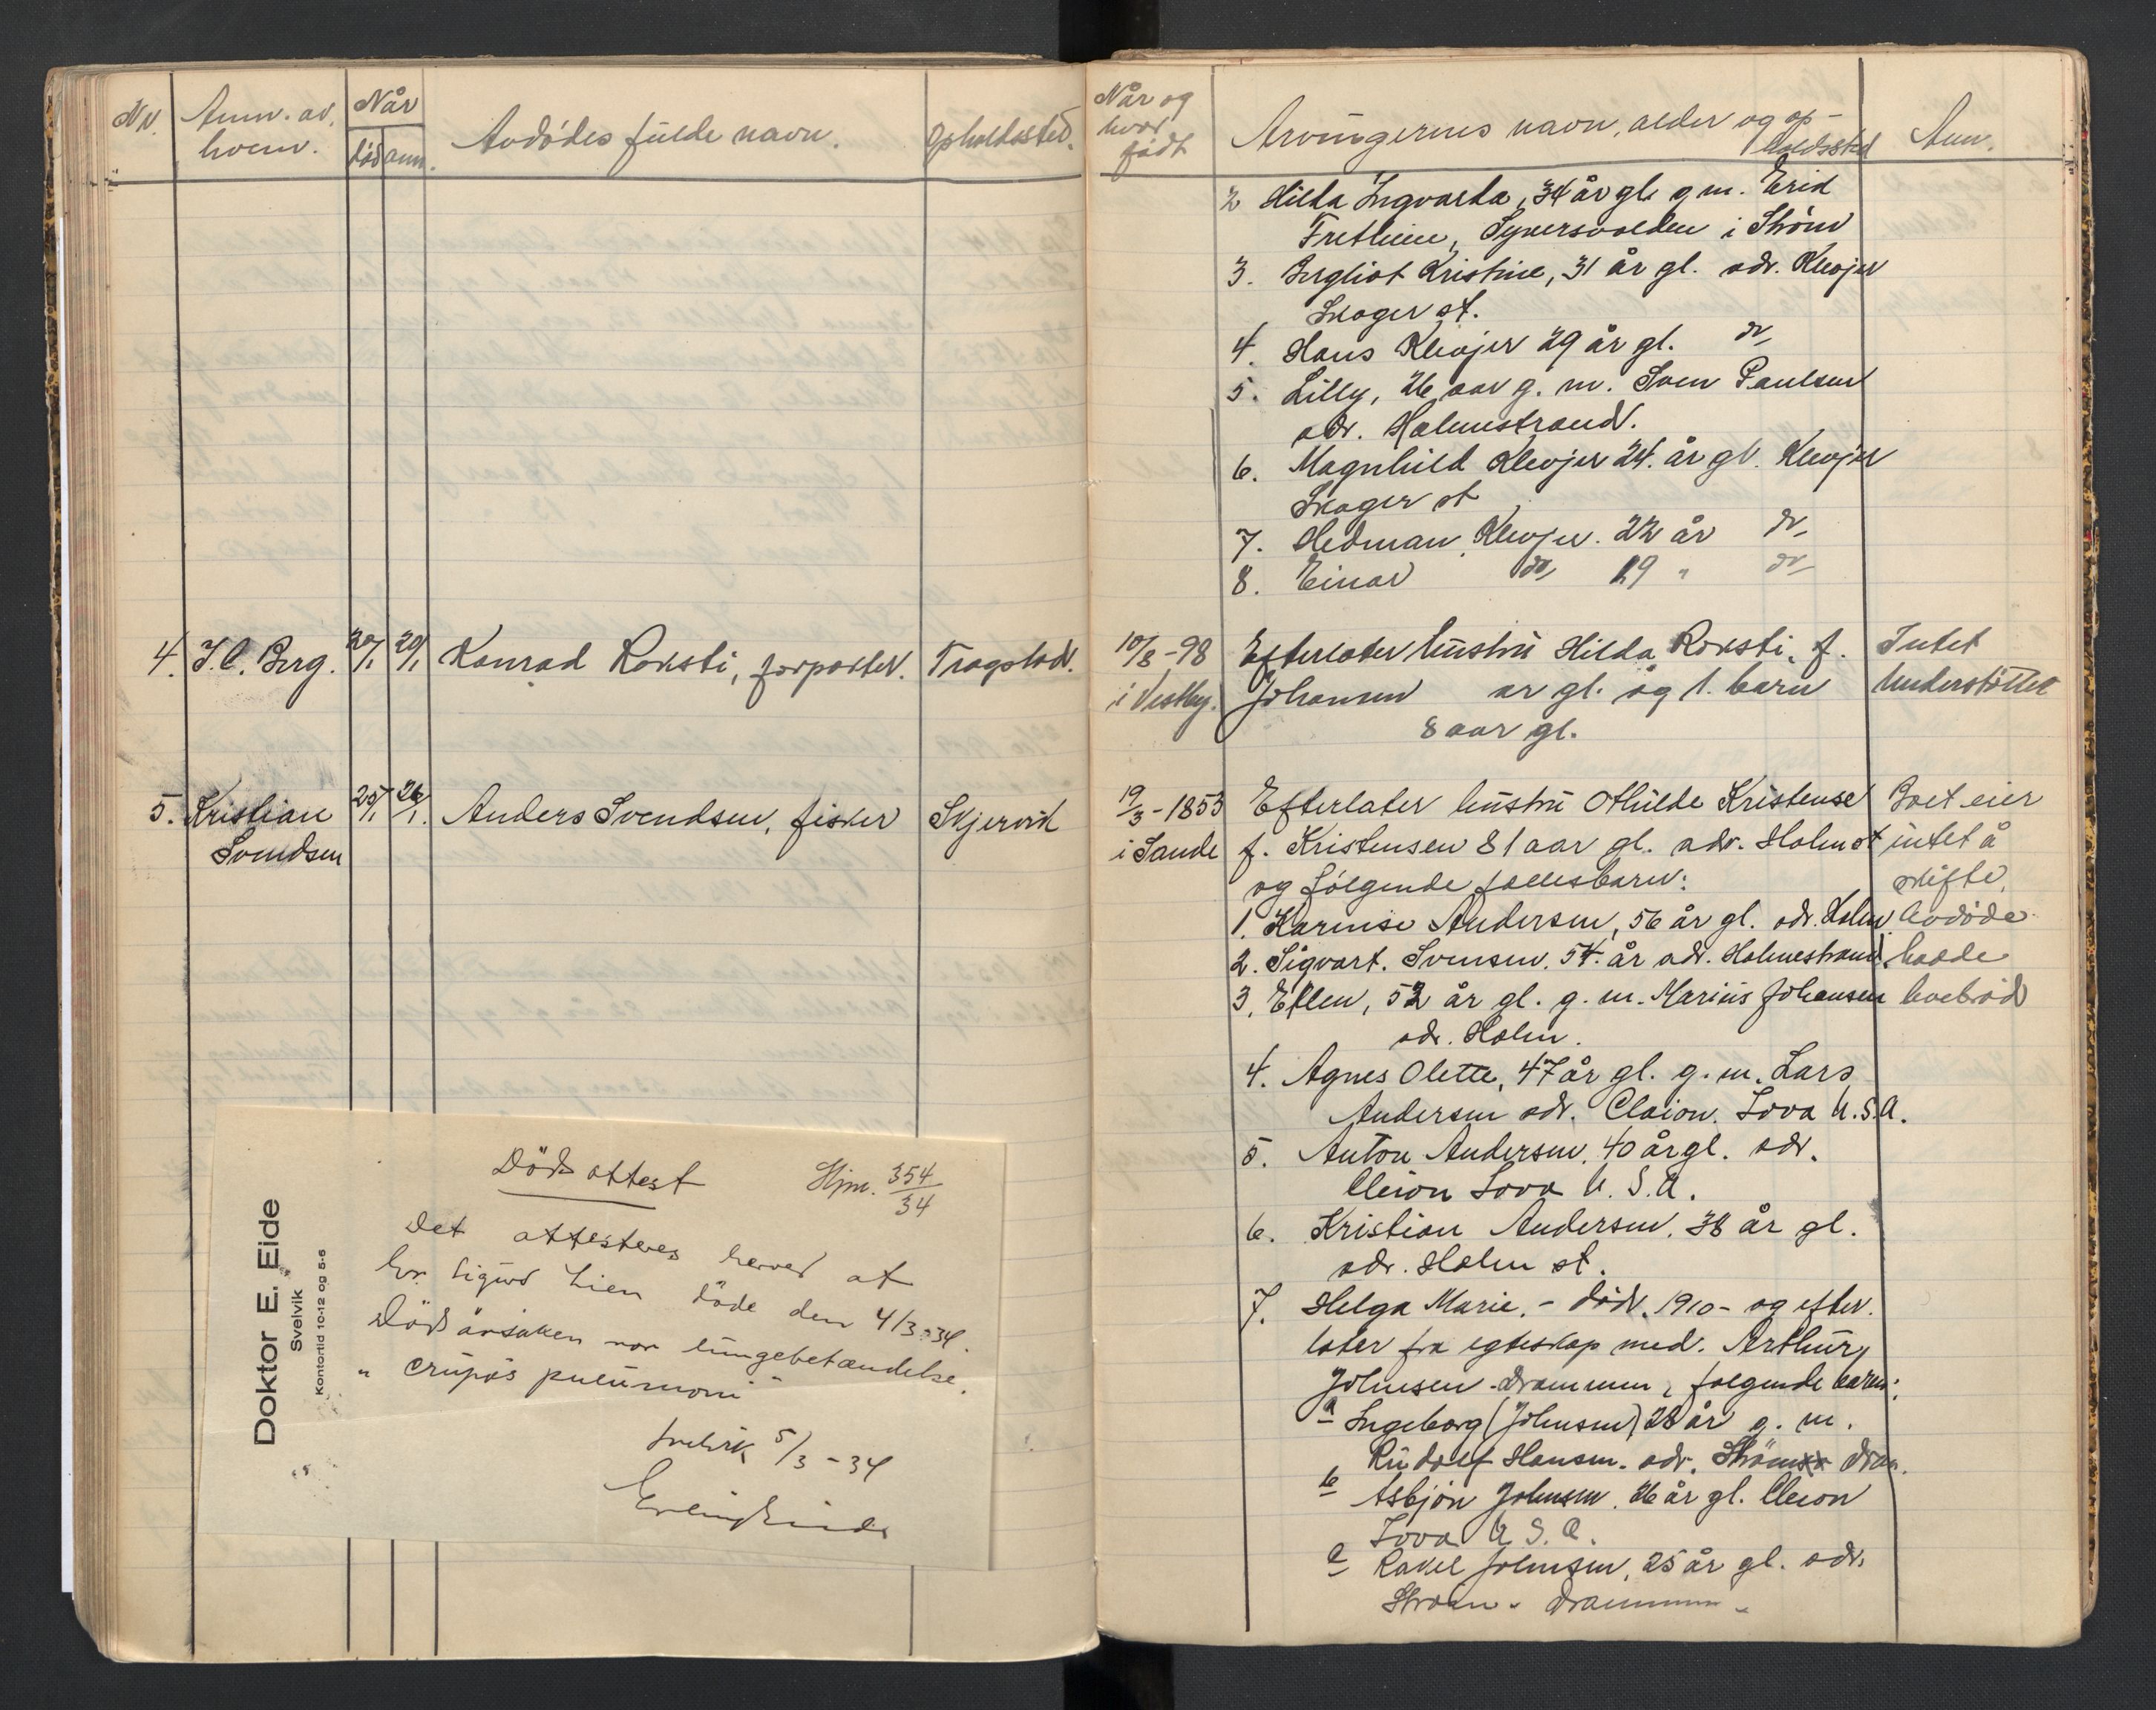 Nr. Anm. av hvem. Når død anm. Avdødes fulde navn. Opholdssted.
4. J. C. Berg. 20/1 29/1 Konrad Roksti, forpakter. Tragstad.
5. Kristian 25/1 26/1. Anders Svendsen, fisker Skjervik
Svendsen
Doktor E. Eide
Svelvik
Kontortid 10-12 og 5-6
Dödsattest Hjm. 354/34
Det attesteres herved at
hr. Sigurd Lien döde den 4/3-34.
Dödsårsaken var lungebetændelse.
" crupøs pneumoni "
Svelvik 5/3-34
Erling Eide
Når og hvor født Arvingernes navn, alder og opholdssted Anm.
2 Hilda Ingvarda, 34 år gl. g.m.
Fretheim, i Strøm
3. Bergliot Kristine, 31 år gl. adr. Klevjer
Skoger st.
4. Hans Klevjer 29 år gl. do
5. Lilly, 26 aar g. m. Sven Paulsen
adr. Holmestrand.
6. Magnhild Klevjer 24. år gl. Klevjer
Skoger st
7. Hedman Klevjer. 22 år do
8. Einar do 19 " do
10/8-98 Efterlater hustru Hilda Roksti, f. Intet
i Vestby. Johansen ar gl. og 1. barn Understøttet
8 aar gl.
19/3-1853 Efterlater hustru Othilde Kristense Boet eier
i Sande f. Kristensen 81 aar gl. adr. Holm st intet å
og følgende fællesbarn: skifte.
1. Karense Andersen, 56 år gl. adr. Holm. Avdøde
2. Sigvart. Svensen. 54. år adr. Holmestrand. hadde
3. Ellen, 52 år gl. g. m. Marius Johansen levebrød
adr. Holm.
4. Agnes Olette, 47 år gl. g. m. Lars
Andersen adr. Claion. Iova U.S.A.
5. Anton Andersen. 40 år gl. adr.
Cleion Iova U. S. A.
6. Kristian Andersen. 38 år gl.
adr. Holm st.
7. Helga Marie. - død. 1910- og efter.
later fra egteskap med. Arthur
Johnsen - Drammen, følgende barn:
a Ingeborg (Johnsen) 28 år g. m.
Rudolf Hansen. adr. Strøm Dram.
b Asbjøn Johnsen. 26 år gl. Cleion
Iova U. S. A.
c Rakel Johnsen, 25 år gl. adr.
Strøm - Drammen -